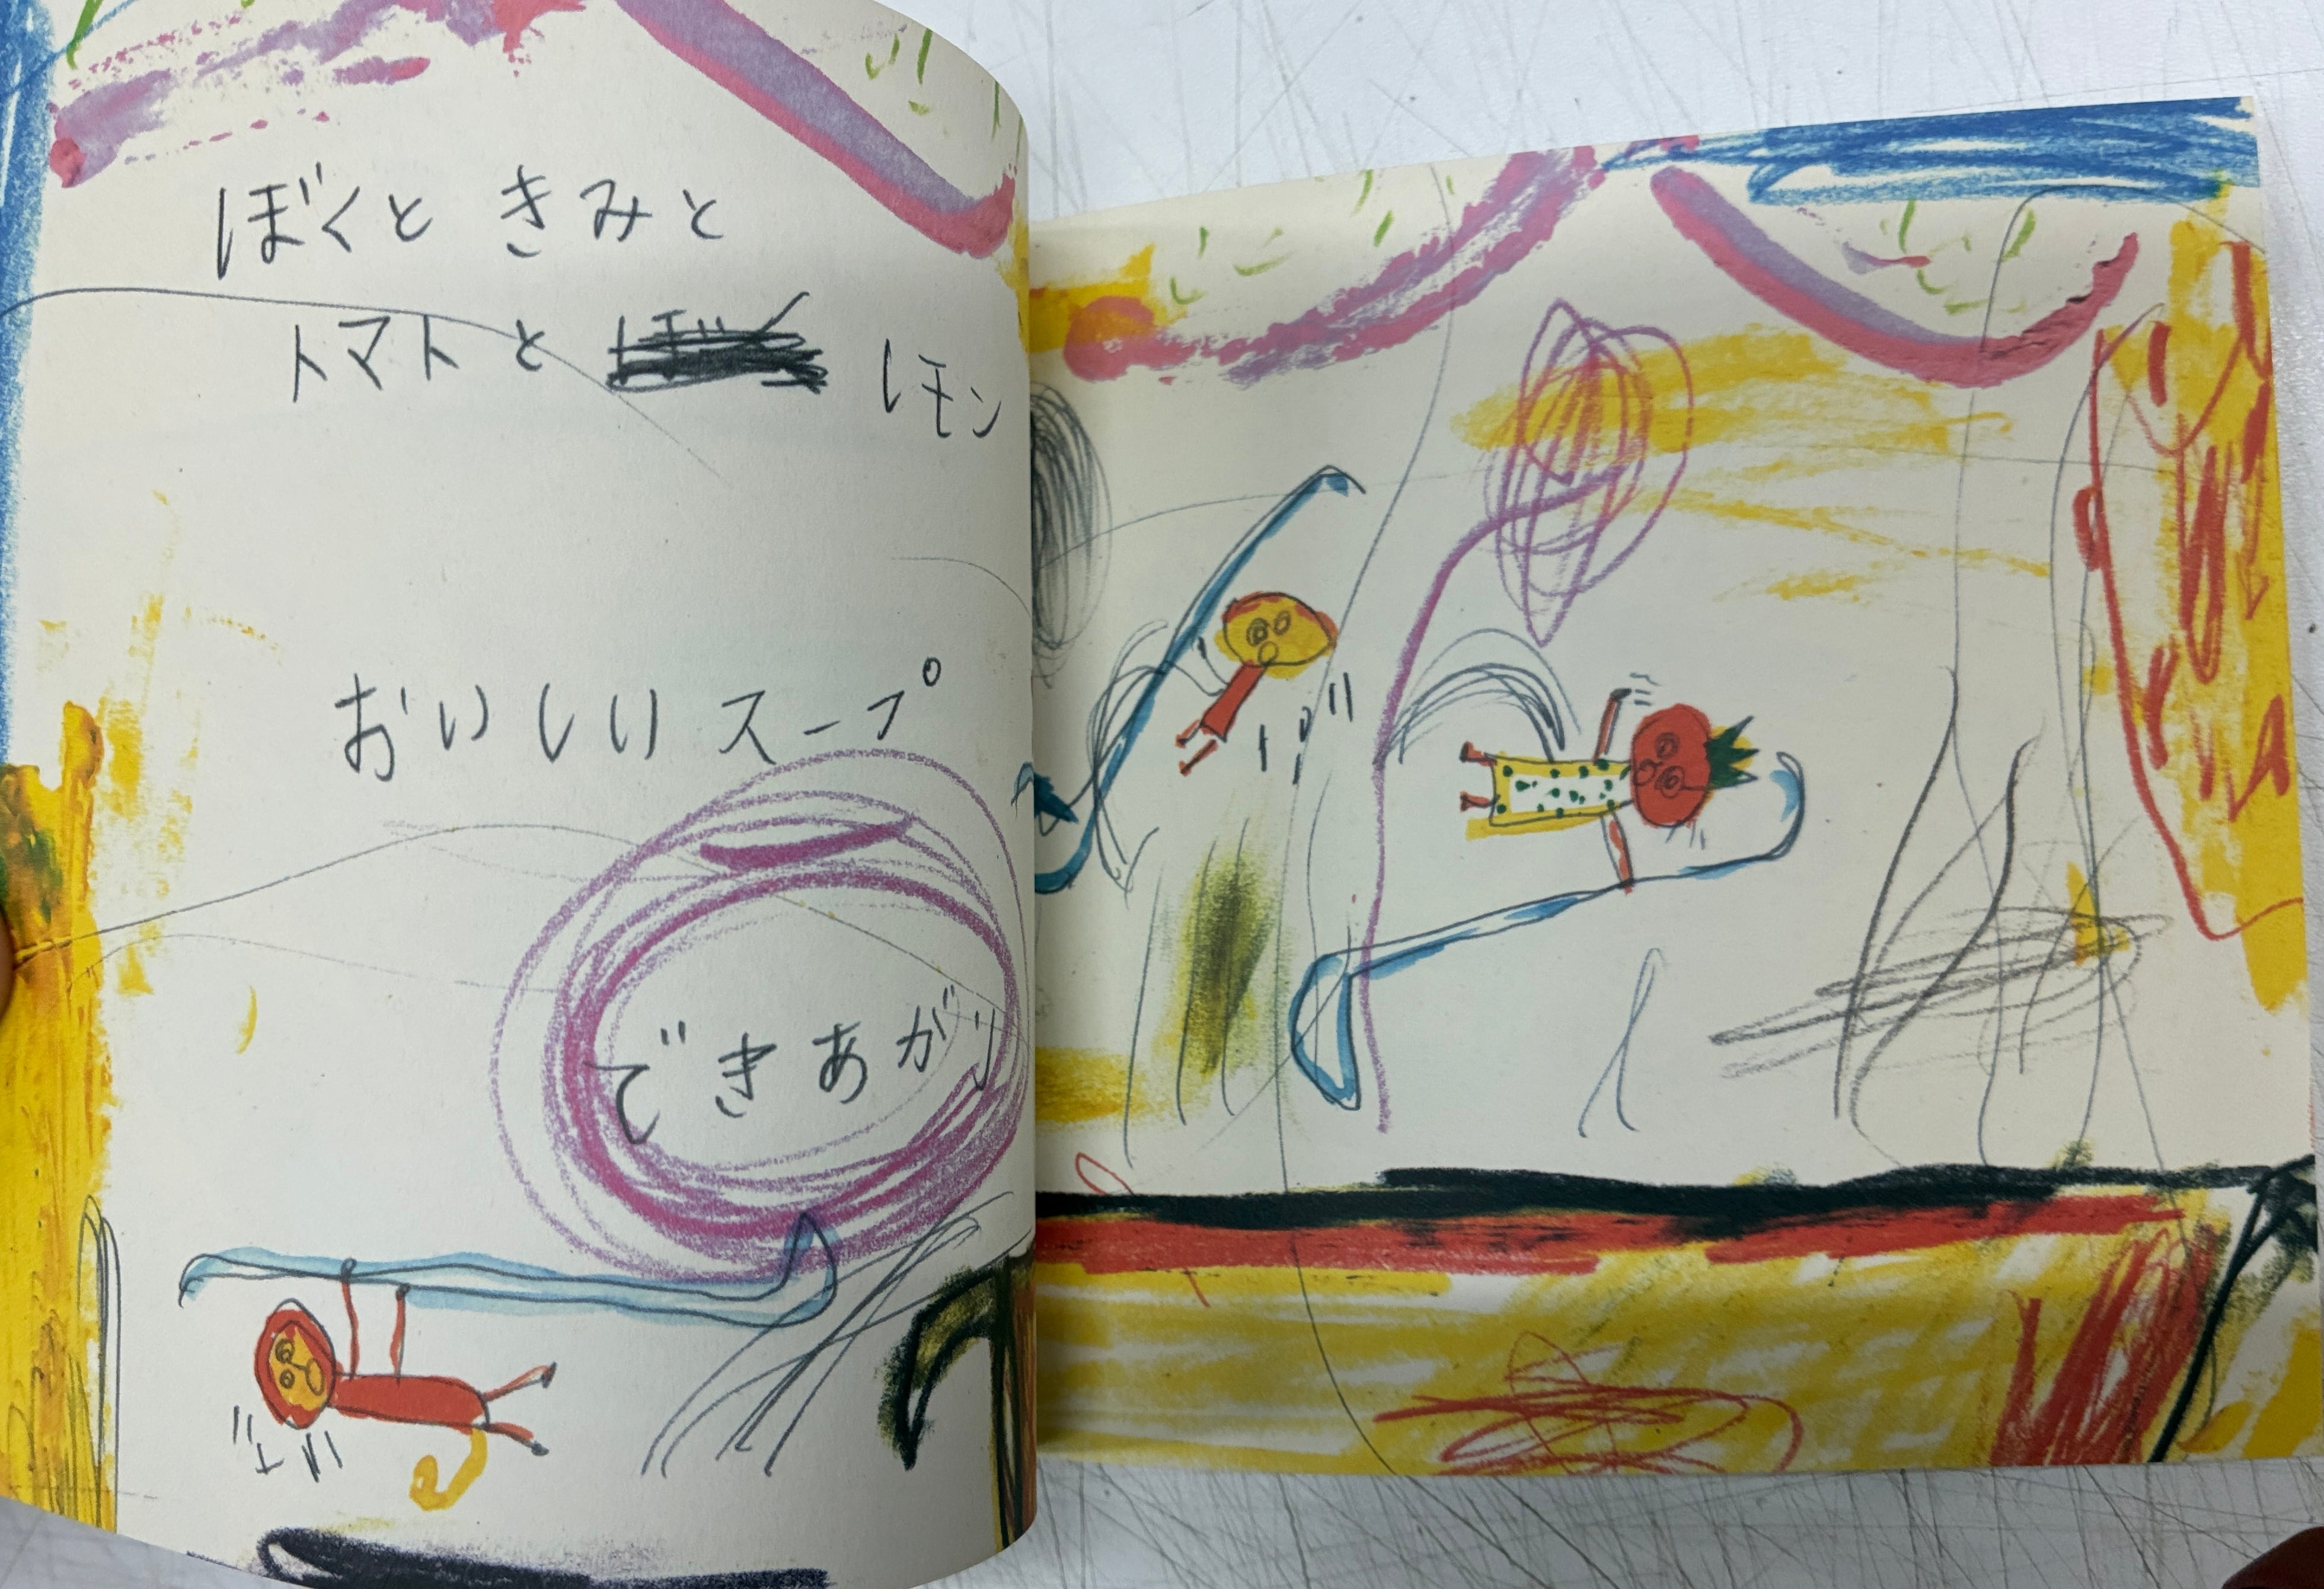 ぼくと きみと
トマトと レモン
おいしいスープ
できあがり